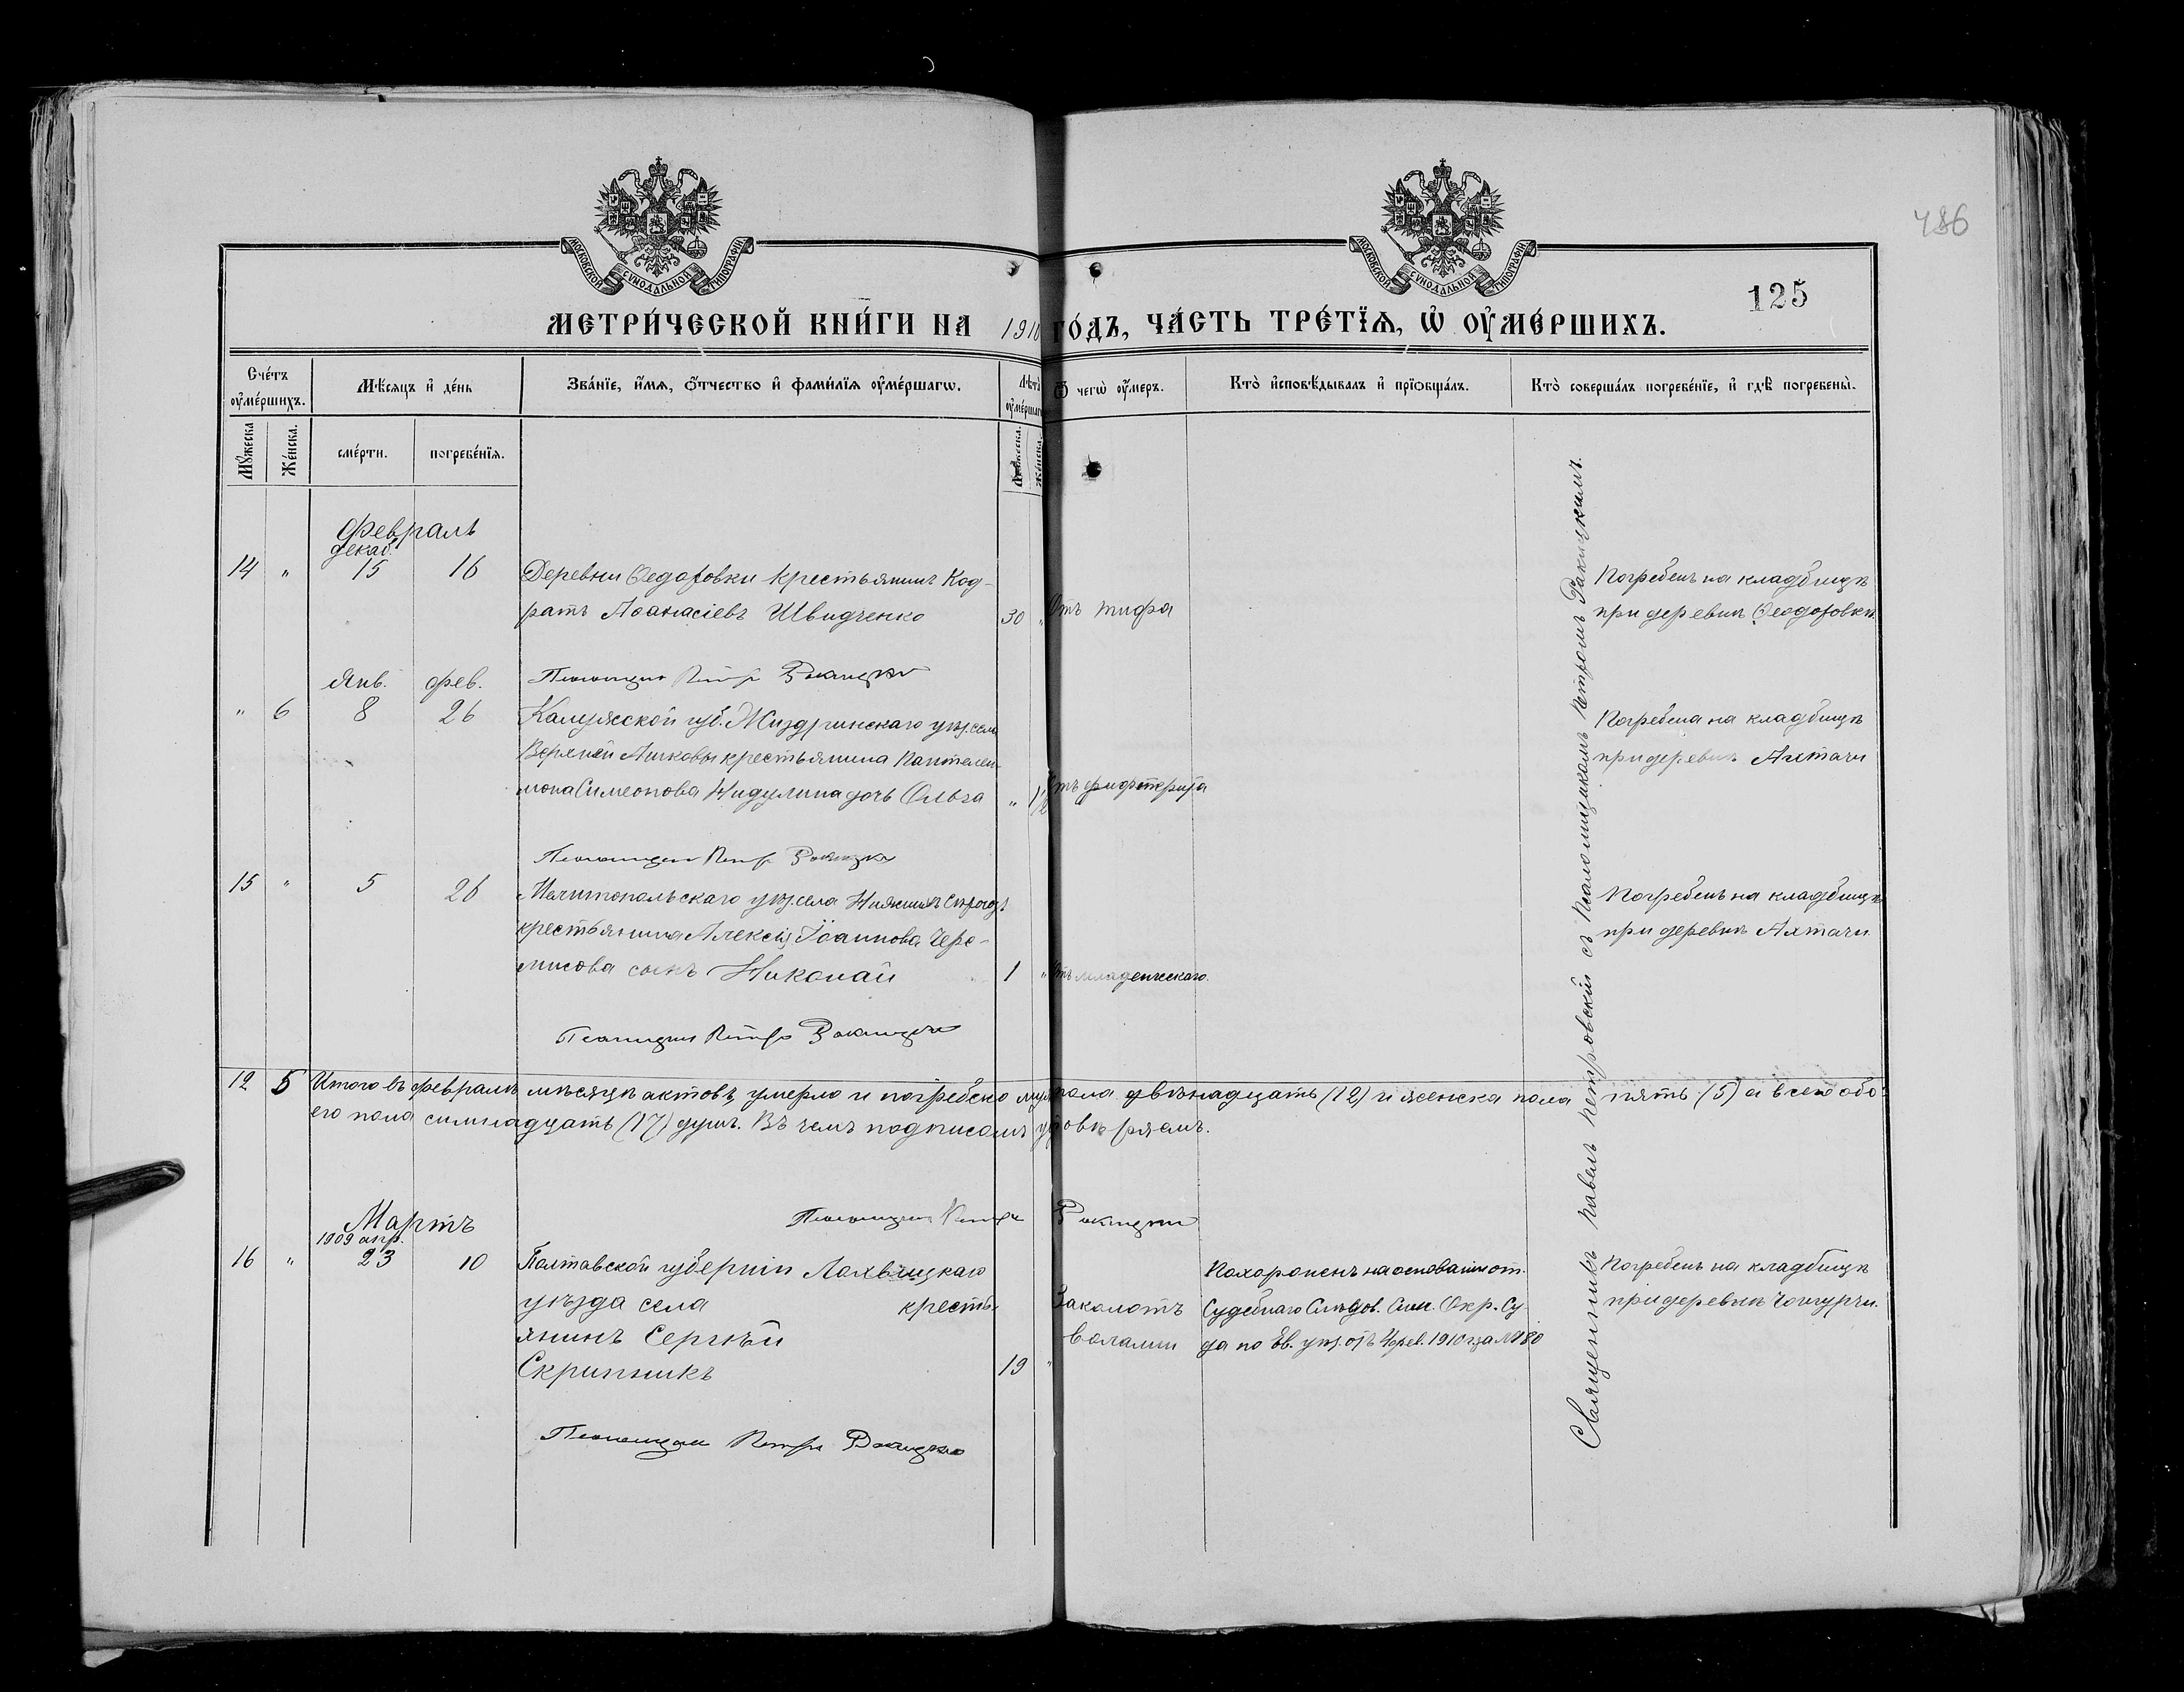 486
125
МОСКОВСКОЙ СѴНОДАЛЬНОЙ ТИПОГРАФІИ
МОСКОВСКОЙ СѴНОДАЛЬНОЙ ТИПОГРАФІИ
МЕТРИ́ЧЕСКОЙ КНИ́ГИ НА 1910 ГО́ДЪ, ЧА́СТЬ ТРЕ́ТЇѦ, Ѡ҆ ОУ҆МЕ́РШИХЪ.
Сче́тъ оу҆ме́ршихъ.
Мѣ́сяцъ и҆ де́нь
Зва́нїе, и҆́мѧ, ѻ҆́тчество и҆ фами́лїѧ оу҆ме́ршагѡ.
Лѣ́та оу҆ме́ршагѡ
Ѿ чегѡ̀ оу҆́меръ.
Кто̀ и҆сповѣ́дывалъ и҆ прїѡбща́лъ.
Кто̀ соверша́лъ погребе́нїе, и҆ гдѣ̀ погребены̀.
Мꙋ́жеска
Же́нска.
сме́рти.
погребе́нїѧ.
Мꙋ́жеска.
Же́нска.
Февраль
декаб.
14 " 15 16 Деревни Ѳедоровки крестьянинъ Код-
ратъ Аѳанасіевъ Швидченко 30 " Отъ тифа
Погребенъ на кладбищѣ
при деревнѣ Ѳеодоровкѣ
Псаломщикъ Петръ Ракицкій
Янв. фев.
" 6 8 26 Калужской губ. Жиздринскаго уѣз. села
крестьянина Пантелеи-
мона Симеонова дочь Ольга " 1/2 Отъ дифтерита
Погребена на кладбищѣ
при деревнѣ Ахтачи
Псаломщикъ Петръ Ракицкій
15 " 5 26 Мелитопольскаго уѣз. села Нижнихъ Сѣрогоз.
крестьянина Алексія Іоаннова Чере-
мисова сынъ Николай 1 " Отъ младенческаго.
Погребенъ на кладбищѣ
при деревнѣ Ахтачи
Псаломщикъ Петръ Ракицкій
12 5 Итого въ февралѣ мѣсяцѣ актовъ умерло и погребено муж. пола двѣнадцать (12) и женска пола пять (5) а всего обо-
его пола семнадцать (17) душъ. Въ чемъ подписомъ удовѣряемъ.
Псаломщикъ Петръ Ракицкій
Мартъ
1909 апр.
16 " 23 10 Полтавской губерніи Лохвицкаго
уѣзда села кресть-
янинъ Сергѣй
Скрипникъ 19 "
Заколотъ
волами
Похороненъ на основаніи от.
Судебнаго Слѣдов. Сим. Окр. Су-
да по Ев. уѣз. отъ 4 фев. 1910 г. за № 180
Погребенъ на кладбищѣ
при деревнѣ Чонгурчи.
Псаломщикъ Петръ Ракицкій
Священникъ Павелъ Петровскій съ Псаломщикомъ Петромъ Ракицкимъ.